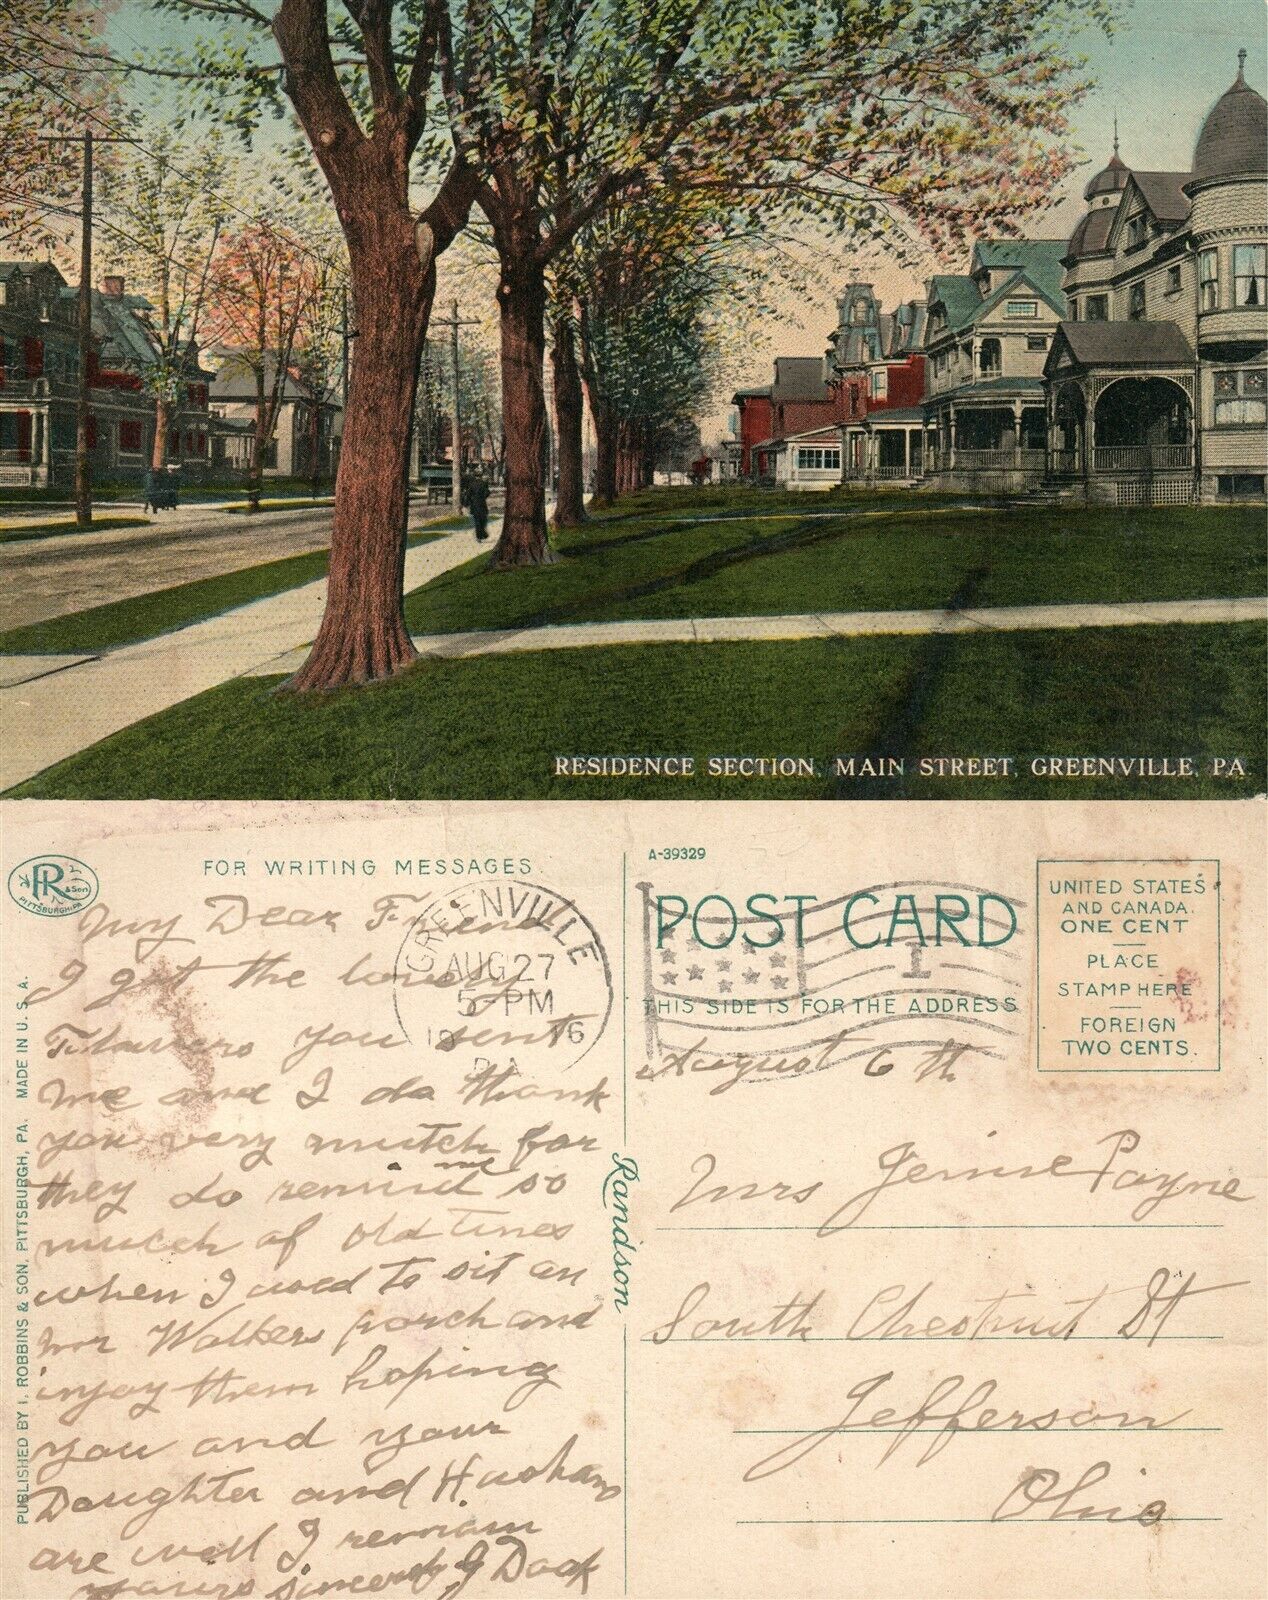 RESIDENCE SECTION, MAIN STREET, GREENVILLE, PA.
R & Son
PITTSBURGH, PA.
FOR WRITING MESSAGES.
My Dear Friend
I got the lovely
Flowers you sent
me and I do thank
you very mutch for
they do remind me so
mutch of old times
when I used to sit on
Walkers porch and
injoy them hoping
you and your
Daughter and Husban
are well I remain
yours sincerely J Doak
GREENVILLE
AUG 27
5-PM
19 6
PA
PUBLISHED BY I. ROBBINS & SON, PITTSBURGH, PA. MADE IN U.S.A.
Randson
A-39329
POST CARD
1
THIS SIDE IS FOR THE ADDRESS
UNITED STATES
AND CANADA.
ONE CENT
PLACE
STAMP HERE
FOREIGN
TWO CENTS.
August 6 th
Mrs Jennie Payne
South Chestnut St
Jefferson
Ohio